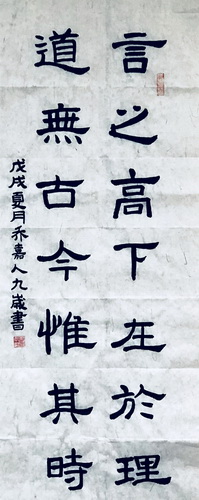 言之高下在於理
道無古今惟其時
戊戌夏月乔嘉人九歲書